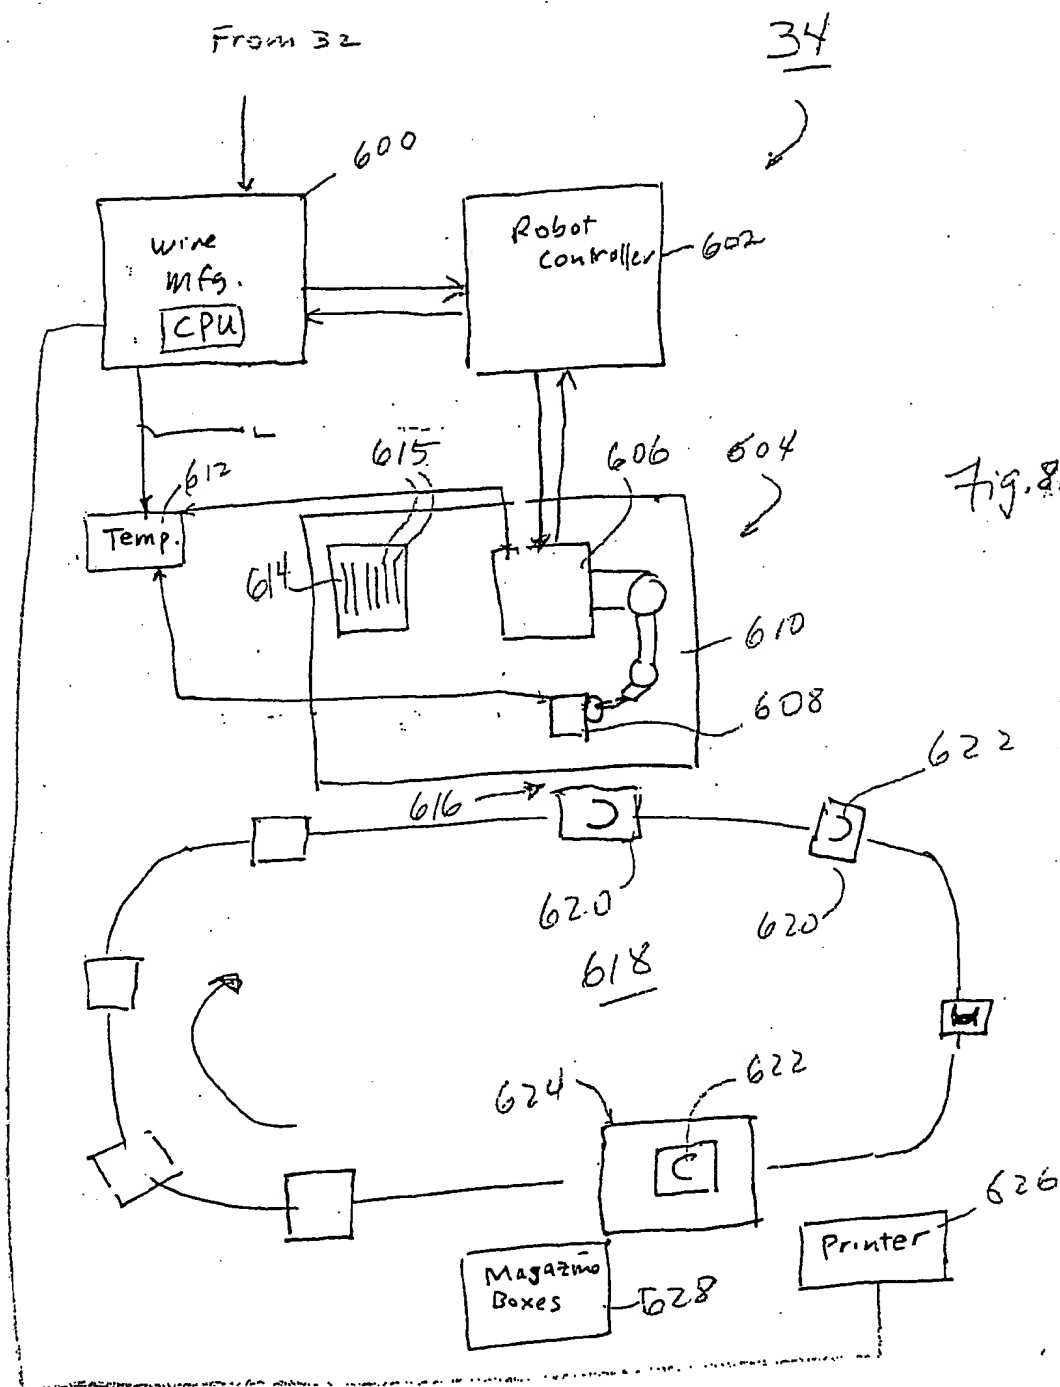 From 32
34
600
Wire
Mfg.
CPU
Robot
Controller
602
L
612
615
606
604
Fig. 8
Temp.
614
610
608
622
616
620
620
618
624
622
626
Printer
Magazine
Boxes
628